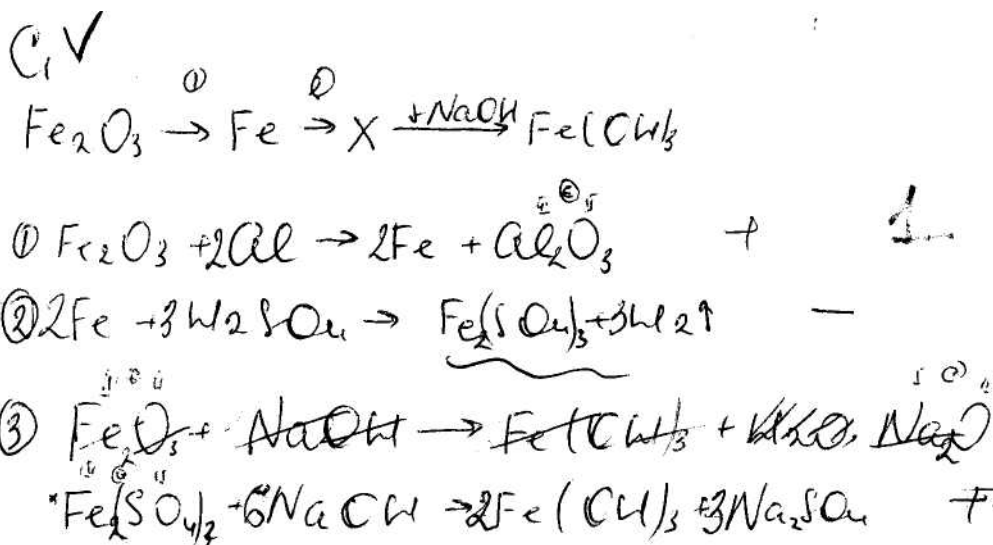 C1 V
① ②
Fe2O3 → Fe → X +NaOH→ Fe(OH)3
① Fe2O3 + 2Al → 2Fe + Al2O3 + 1
② 2Fe + 3H2SO4 → Fe2(SO4)3 + 3H2↑ −
③ Fe2O3 + NaOH → Fe(OH)3 + H2O, Na2O
Fe2(SO4)2 + 6NaOH → 2Fe(OH)3 + 3Na2SO4 +